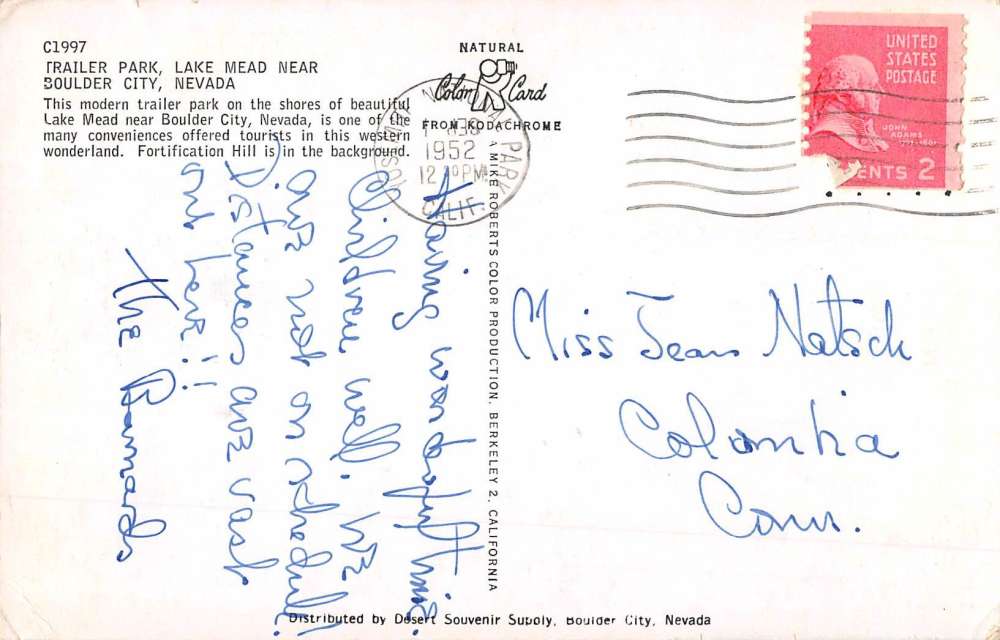 C1997
TRAILER PARK, LAKE MEAD NEAR
BOULDER CITY, NEVADA
This modern trailer park on the shores of beautiful
Lake Mead near Boulder City, Nevada, is one of the
many conveniences offered tourists in this western
wonderland. Fortification Hill is in the background.
NATURAL
Color Card
FROM KODACHROME
PARK
1952
12 PM
CALIF.
UNITED
STATES
POSTAGE
JOHN
ADAMS
CENTS 2
Having wonderful time.
Children well. We
are not on schedule!
Distances are vast
out here!!
The Barnards
A MIKE ROBERTS COLOR PRODUCTION, BERKELEY 2, CALIFORNIA
Miss Jean Natsch
Columbia
Conn.
Distributed by Desert Souvenir Supply, Boulder City, Nevada